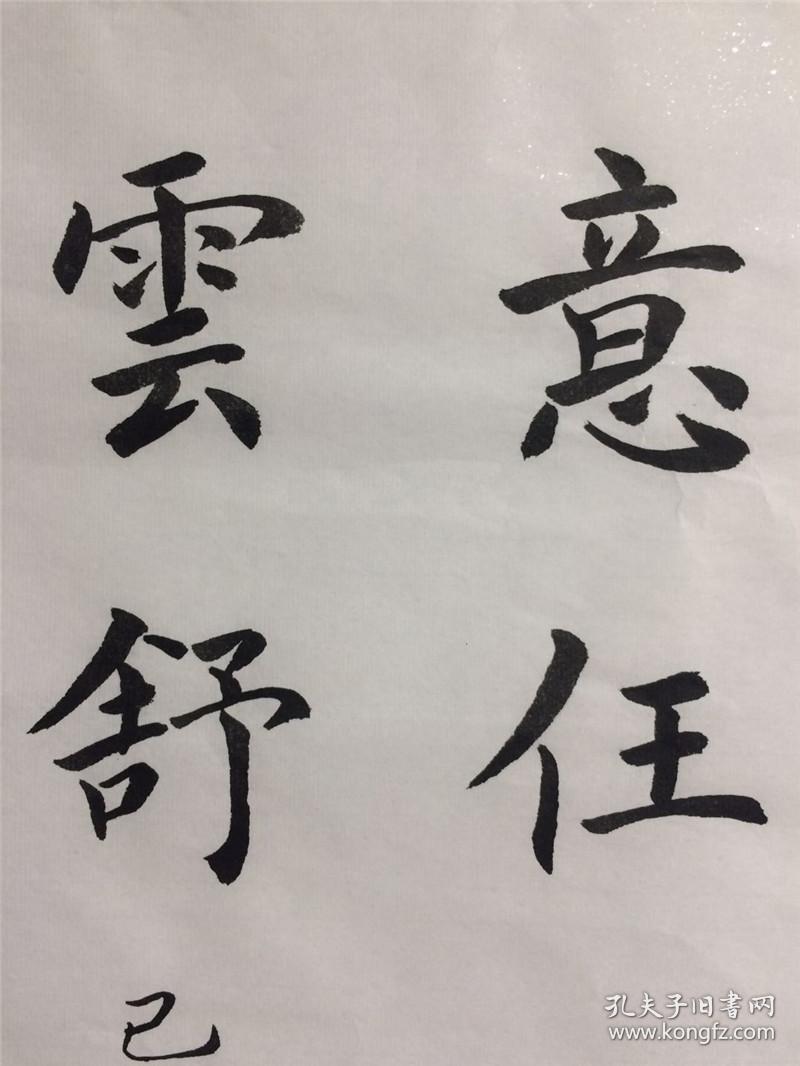 意任
雲舒
已
孔夫子旧書网
www.kongfz.com